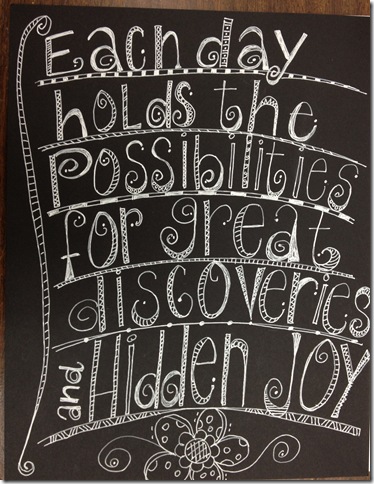 Each day
holds the
Possibilities
for great
discoveries
and Hidden JOY